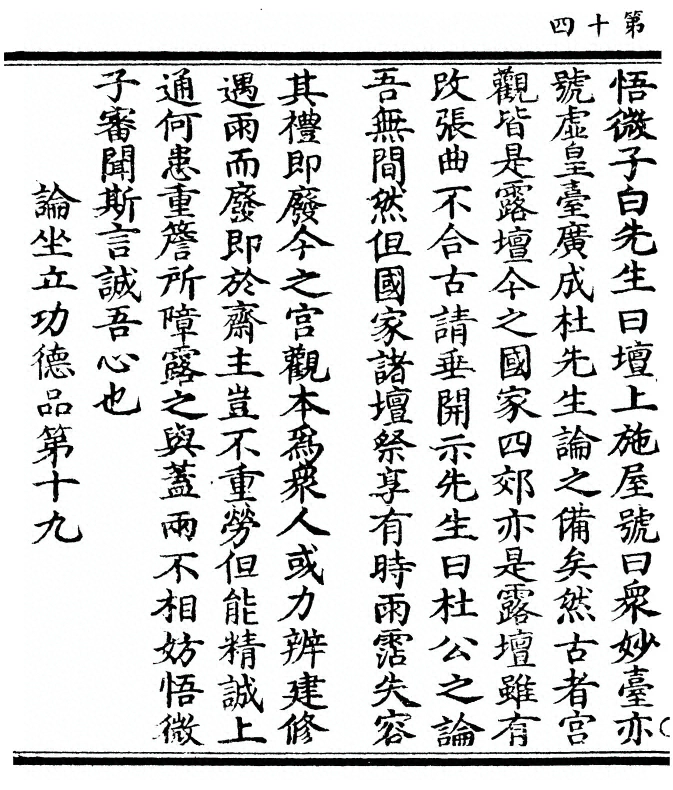 第十四
悟微子白先生曰壇上施屋號曰衆妙臺亦
號虛皇臺廣成杜先生論之備矣然古者宮
觀皆是露壇今之國家四郊亦是露壇雖有
改張曲不合古請垂開示先生曰杜公之論
吾無間然但國家諸壇祭享有時雨霑失容
其禮即廢今之宮觀本爲衆人或力辨建修
遇雨而廢即於齋主豈不重勞但能精誠上
通何患重簷所障露之與蓋兩不相妨悟微
子審聞斯言誠吾心也
論坐立功德品第十九